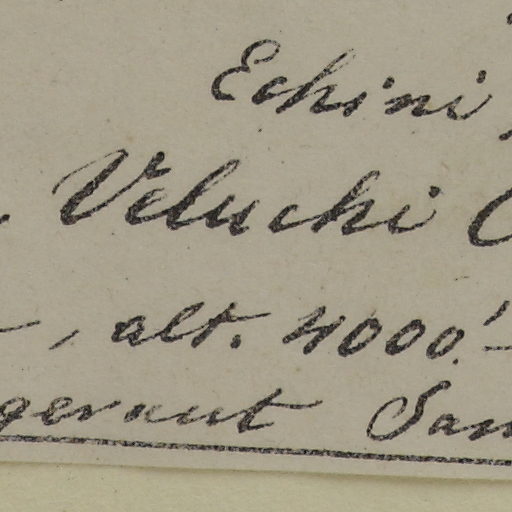 Echini
Veluchi
, alt. 4000'.-
gerunt Sam